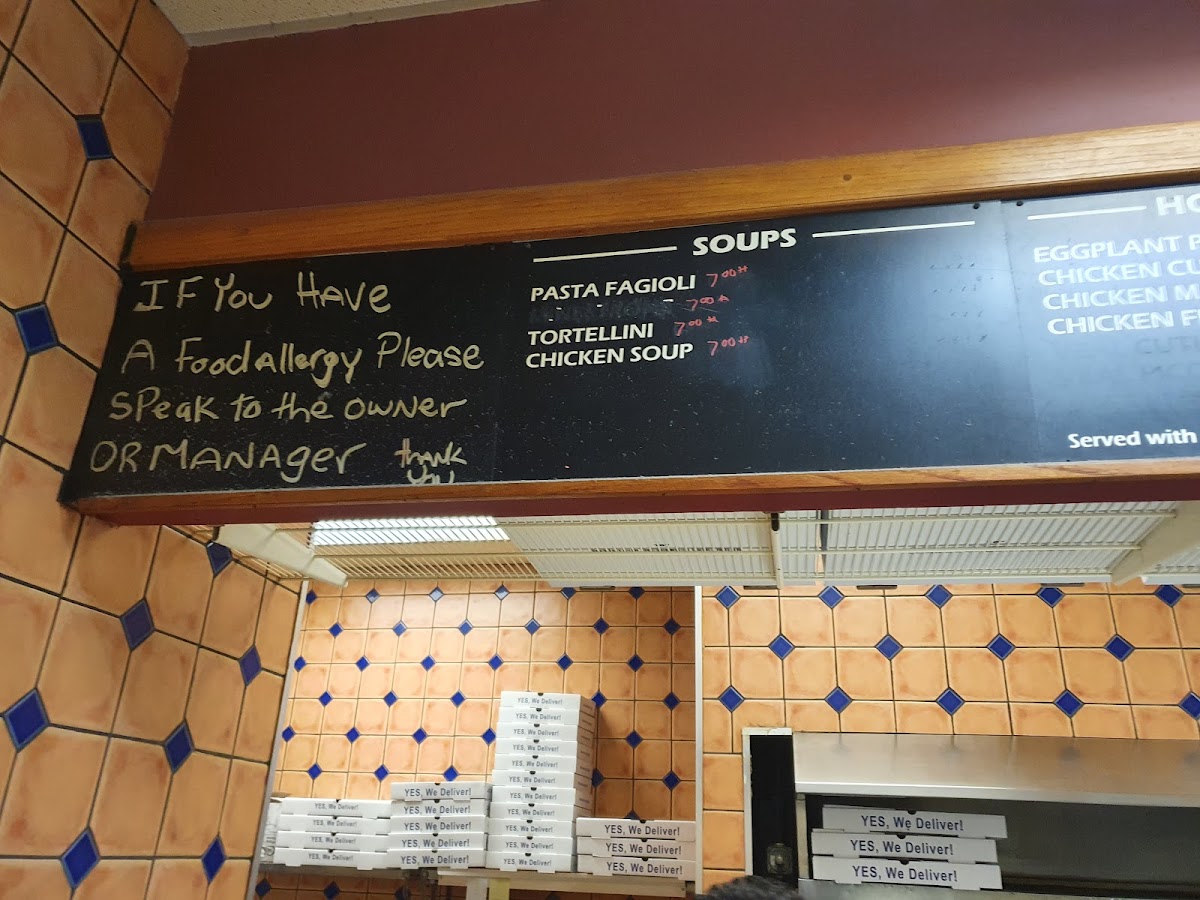 IF You HAVe
A Food Allergy Please
SPeak to the owner
OR MANAger thank
you
SOUPS
PASTA FAGIOLI 7.00
7.00
TORTELLINI 7.00
CHICKEN SOUP 7.00
HO
EGGPLANT P
CHICKEN CU
CHICKEN M
CHICKEN F
Served with
YES, We Deliver!
YES, We Deliver!
YES, We Deliver!
YES, We Deliver!
YES, We Deliver!
YES, We Deliver!
YES, We Deliver!
YES, We Deliver!
YES, We Deliver!
YES, We Deliver!
YES, We Deliver!
YES, We Deliver!
YES, We Deliver!
YES, We Deliver!
YES, We Deliver!
YES, We Deliver!
YES, We Deliver!
YES, We Deliver!
YES, We Deliver!
YES, We Deliver!
YES, We Deliver!
YES, We Deliver!
YES, We Deliver!
YES, We Deliver!
YES, We Deliver!
YES, We Deliver!